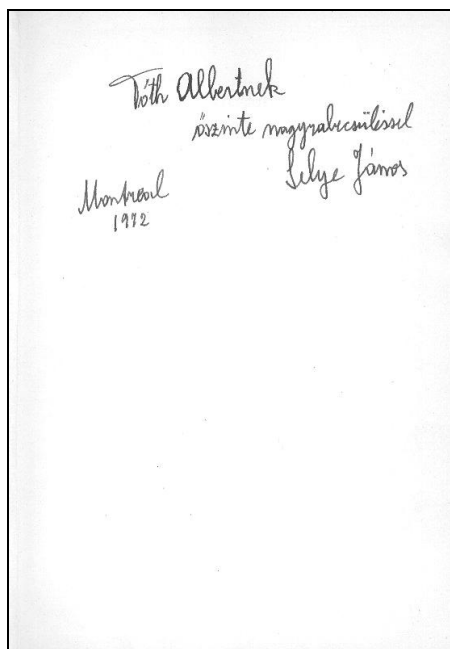 Tóth Albertnek
őszinte nagyrabecsüléssel
Selye János
Montreal
1972